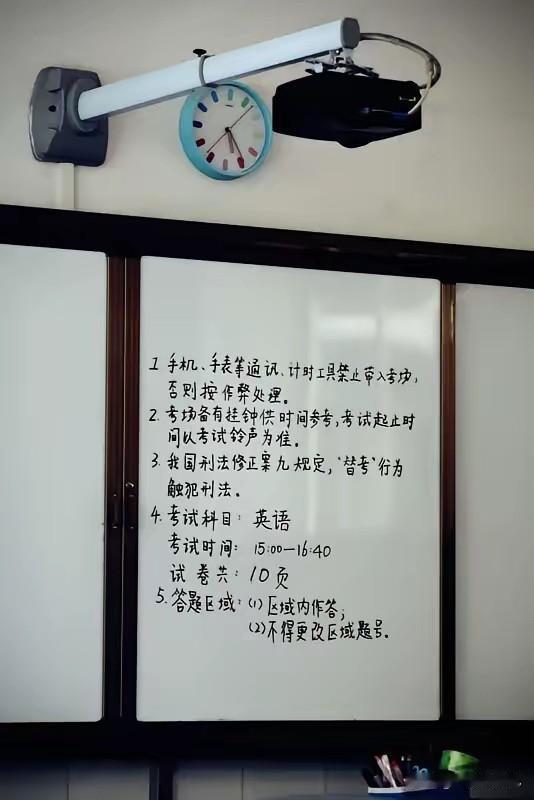 1 手机、手表等通讯、计时工具禁止带入考场,
否则按作弊处理。
2. 考场备有挂钟供时间参考,考试起止时
间以考试铃声为准。
3. 我国刑法修正案九规定,"替考"行为
触犯刑法。
4. 考试科目: 英语
考试时间: 15:00—16:40
试卷共: 10页
5. 答题区域: (1) 区域内作答;
(2) 不得更改区域题号.